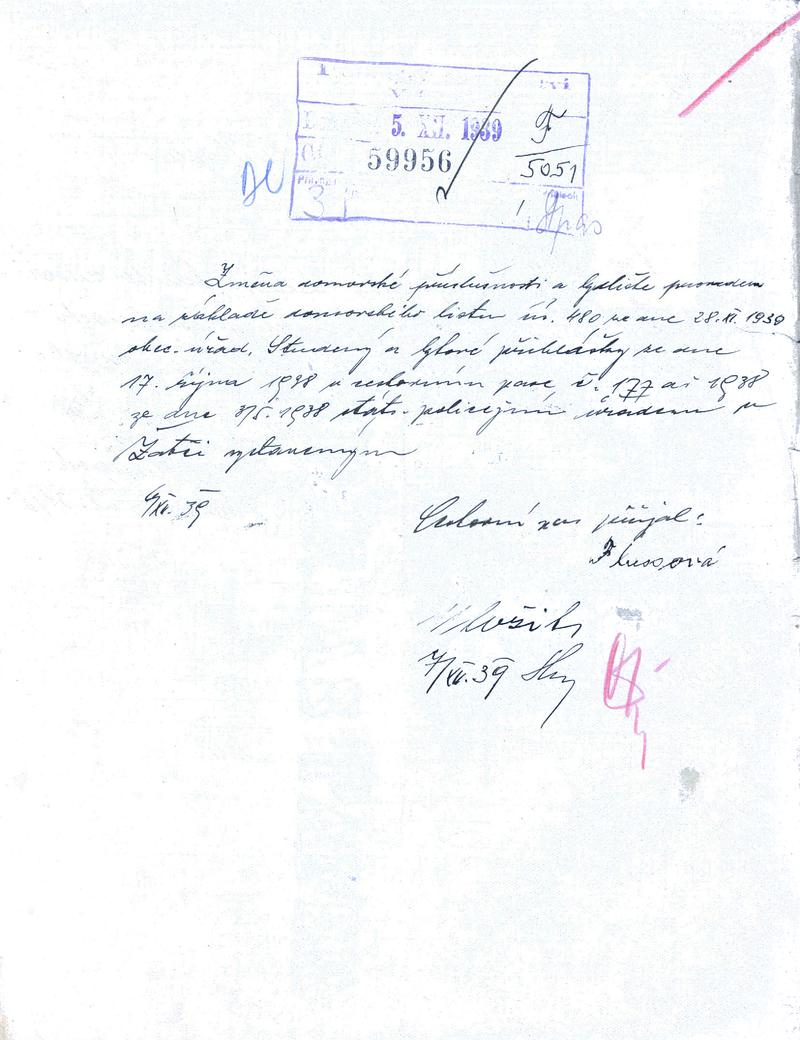 5. XII. 1939
59956
F
5051
Změna domovské příslušnosti a bydliště provedena
na základě domovského listu čís. 480 ze dne 28.XI.1939
obec. úřad. Studený a bytové přihlášky ze dne
17. října 1938 v cestovním pase č. 177 ai 1938
ze dne 3/5. 1938 stát. policejním úřadem v
Žatci vystaveným
6/XII. 39
Cestovní pas přijal:
Flussová
Uložiti
7/XII. 39